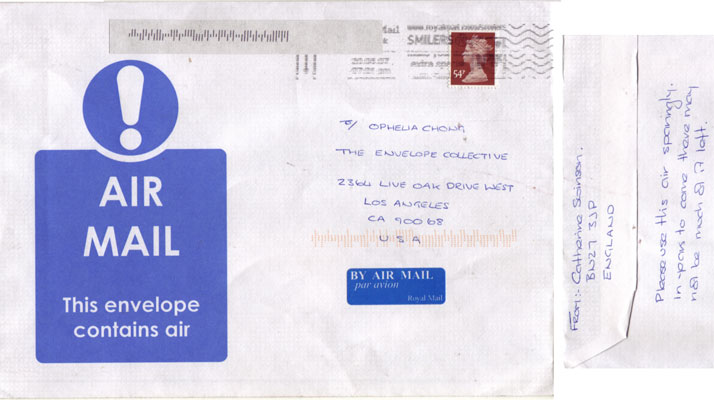 AIR
MAIL
This envelope
contains air
Mail
www.royalmail.com/smilers
SMILERS
extra spe
54
To/ OPHELIA CHONG
THE ENVELOPE COLLECTIVE
2364 LIVE OAK DRIVE WEST
LOS ANGELES
CA 90068
USA
BY AIR MAIL
par avion
Royal Mail
FROM:- Catherine
BN27 3JP
ENGLAND
Please use this air sparingly.
In years to come there may
not be much of it left.